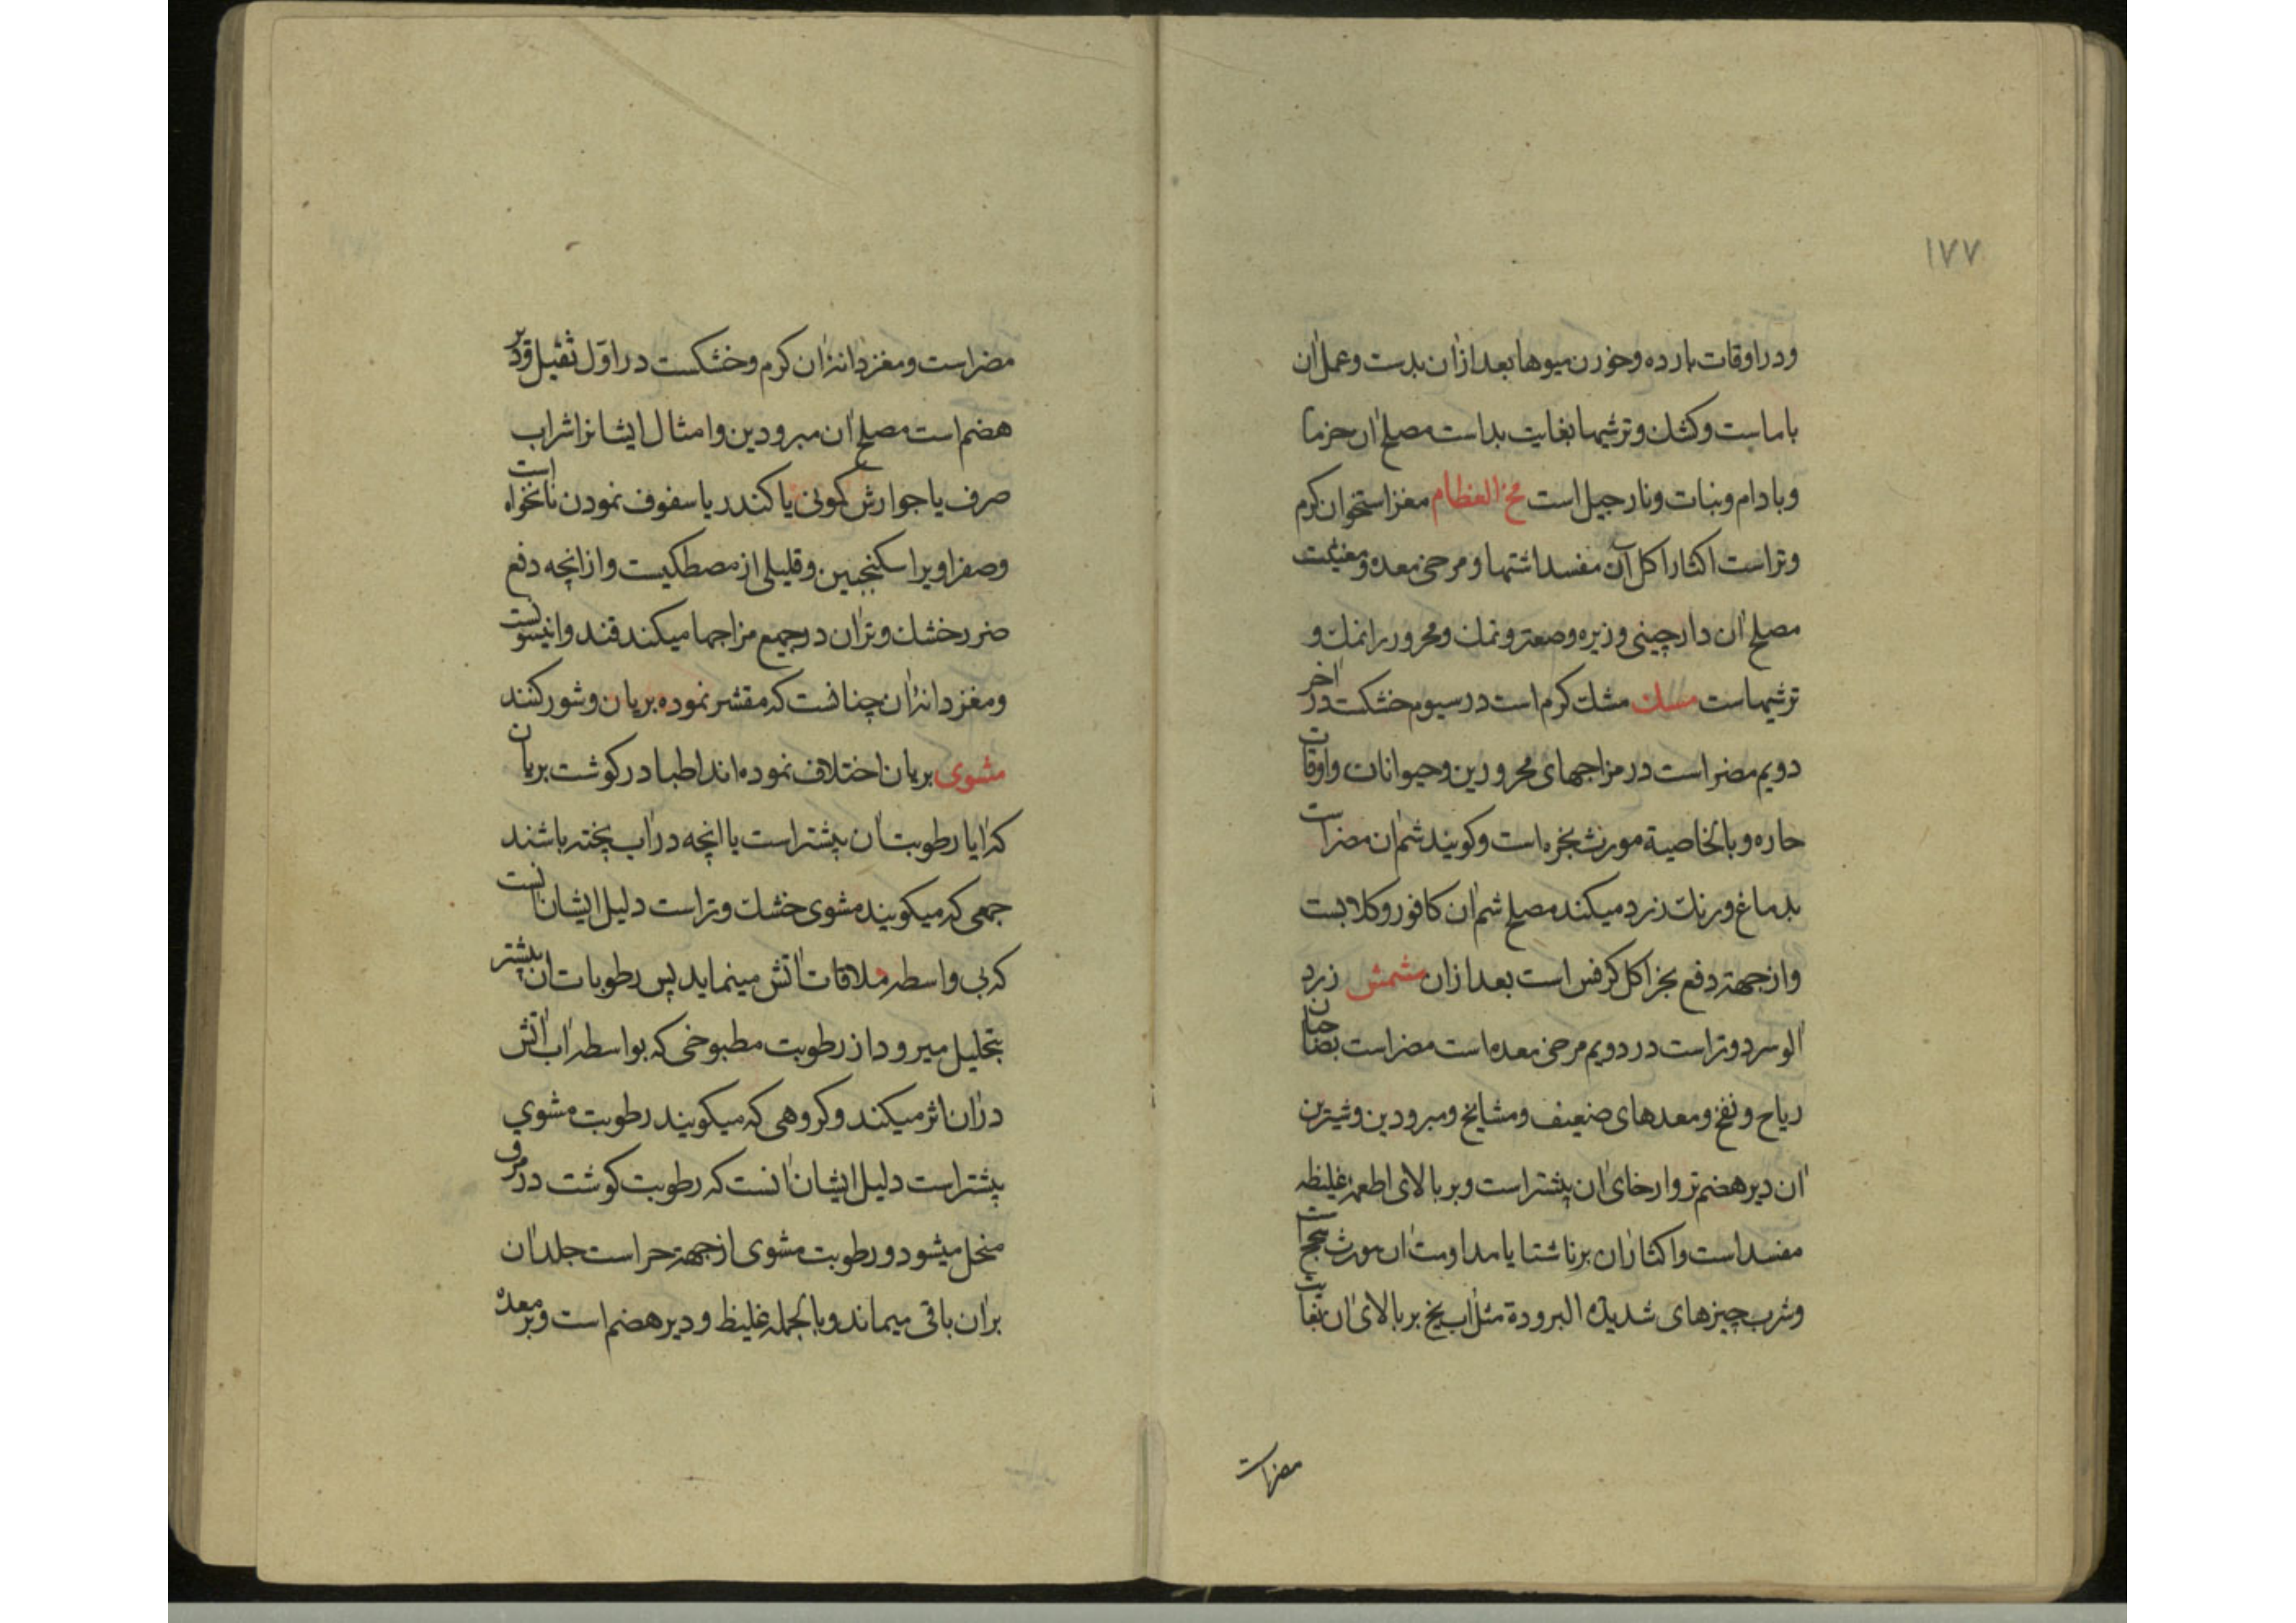 ١٧٧
ودر اوقات بارده وخوردن میوها بعد ازان بدست وعمل ان
با ماست وکشك وترشیها بغایت بد است مصلح ان خرما
وبادام ونبات ونارجیل است مخ العظام مغز استخوان کرم
وتر است اکثار اکل آن مفسد اشتها ومرخی معده ومغثیست
مصلح ان دارچینی وزیره وصعتر ونمك ومحرور را نمك و
ترشیهاست مسك مشك کرم است در سیوم خشکست در اخر
دویم مضر است در مزاجهای محرورین وحیوانات واوقات
حاره وبالخاصیة مورث بخر است وکویند شم ان مضر است
بدماغ ورنك زرد میکند مصلح شم ان کافور وکلابست
واز جهة دفع بخر اکل کرفس است بعد ازان مشمش زرد
الو سرد وتر است در دویم مرخی معده است مضر است بصاحبان
ریاح ونفخ ومعدهای ضعیف ومشایخ ومبرودین وشیرین
ان دیر هضم تر وارخای ان بیشتر است وبر بالای اطعمهٔ غلیظه
مفسد است واکثار ان بر ناشتا یا مداومت ان مورث
وشرب چیزهای شدیدة البرودة مثل اب یخ بر بالای ان بغایت
مضر است
مضر است ومغز دانهٔ ان کرم وخشکست در اول ثقیل ودیر
هضم است مصلح ان مبرودین وامثال ایشانرا شراب
صرف یا جوارش کمونی یا کندر یا سفوف نمودن نانخواه است
وصفراویرا سکنجبین وقلیلی از مصطکیست وازانچه دفع
ضرر خشك وتر ان در جمیع مزاجها میکند قند وانیسونست
ومغز دانهٔ ان چنانست که مقشر نموده بریان وشور کنند
مشوی بریان اختلاف نموده اند اطبا در کوشت بریان
که ایا رطوبت ان بیشتر است یا انچه در اب پخته باشند
جمعی که میکویند مشوی خشك وتر است دلیل ایشان انست
که بی واسطه ملاقات اتش مینماید پس رطوبات ان بیشتر
بتحلیل میرود از رطوبت مطبوخی که بواسطه اب اتش
دران اثر میکند وکروهی که میکویند رطوبت مشوی
بیشتر است دلیل ایشان انست که رطوبت کوشت در مرق
منحل میشود ورطوبت مشوی از جهة حراست جلد ان
بران باقی میماند وبالجمله غلیظ ودیر هضم است وبر معده